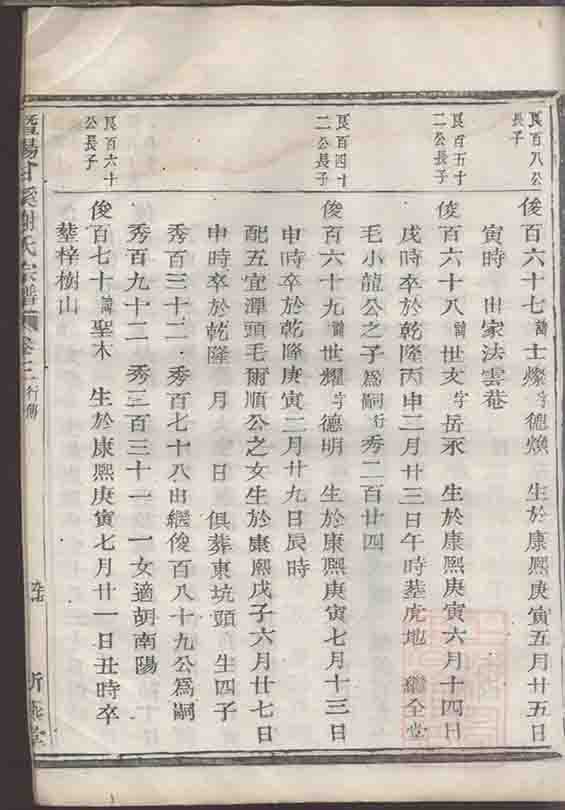 良百八公長子
俊百六十七諱士燦字德煥　生於康熙庚寅五月廿五日
寅時　出家法雲菴
良百五十二公長子
俊百六十八諱世文字岳禾　生於康熙庚寅六月十四日
戌時卒於乾隆丙申二月廿三日午時墓虎地　繼仝堂
毛小龍公之子爲嗣行秀二百廿四
良百四十二公長子
俊百六十九諱世耀字德明　生於康熙庚寅七月十三日
申時卒於乾隆庚寅二月廿九日辰時
配五宜潭頭毛爾順公之女生於康熙戊子六月廿七日
申時卒於乾隆　月　日　俱葬東坑頭　生四子
秀百三十二　秀百七十八出繼俊百八十九公爲嗣
秀百九十二　秀二百三十一　一女適胡南陽
良百六十公長子
俊百七十諱聖木　生於康熙庚寅七月廿一日丑時卒
塟梓樹山
暨陽甘溪謝氏宗譜　行傳